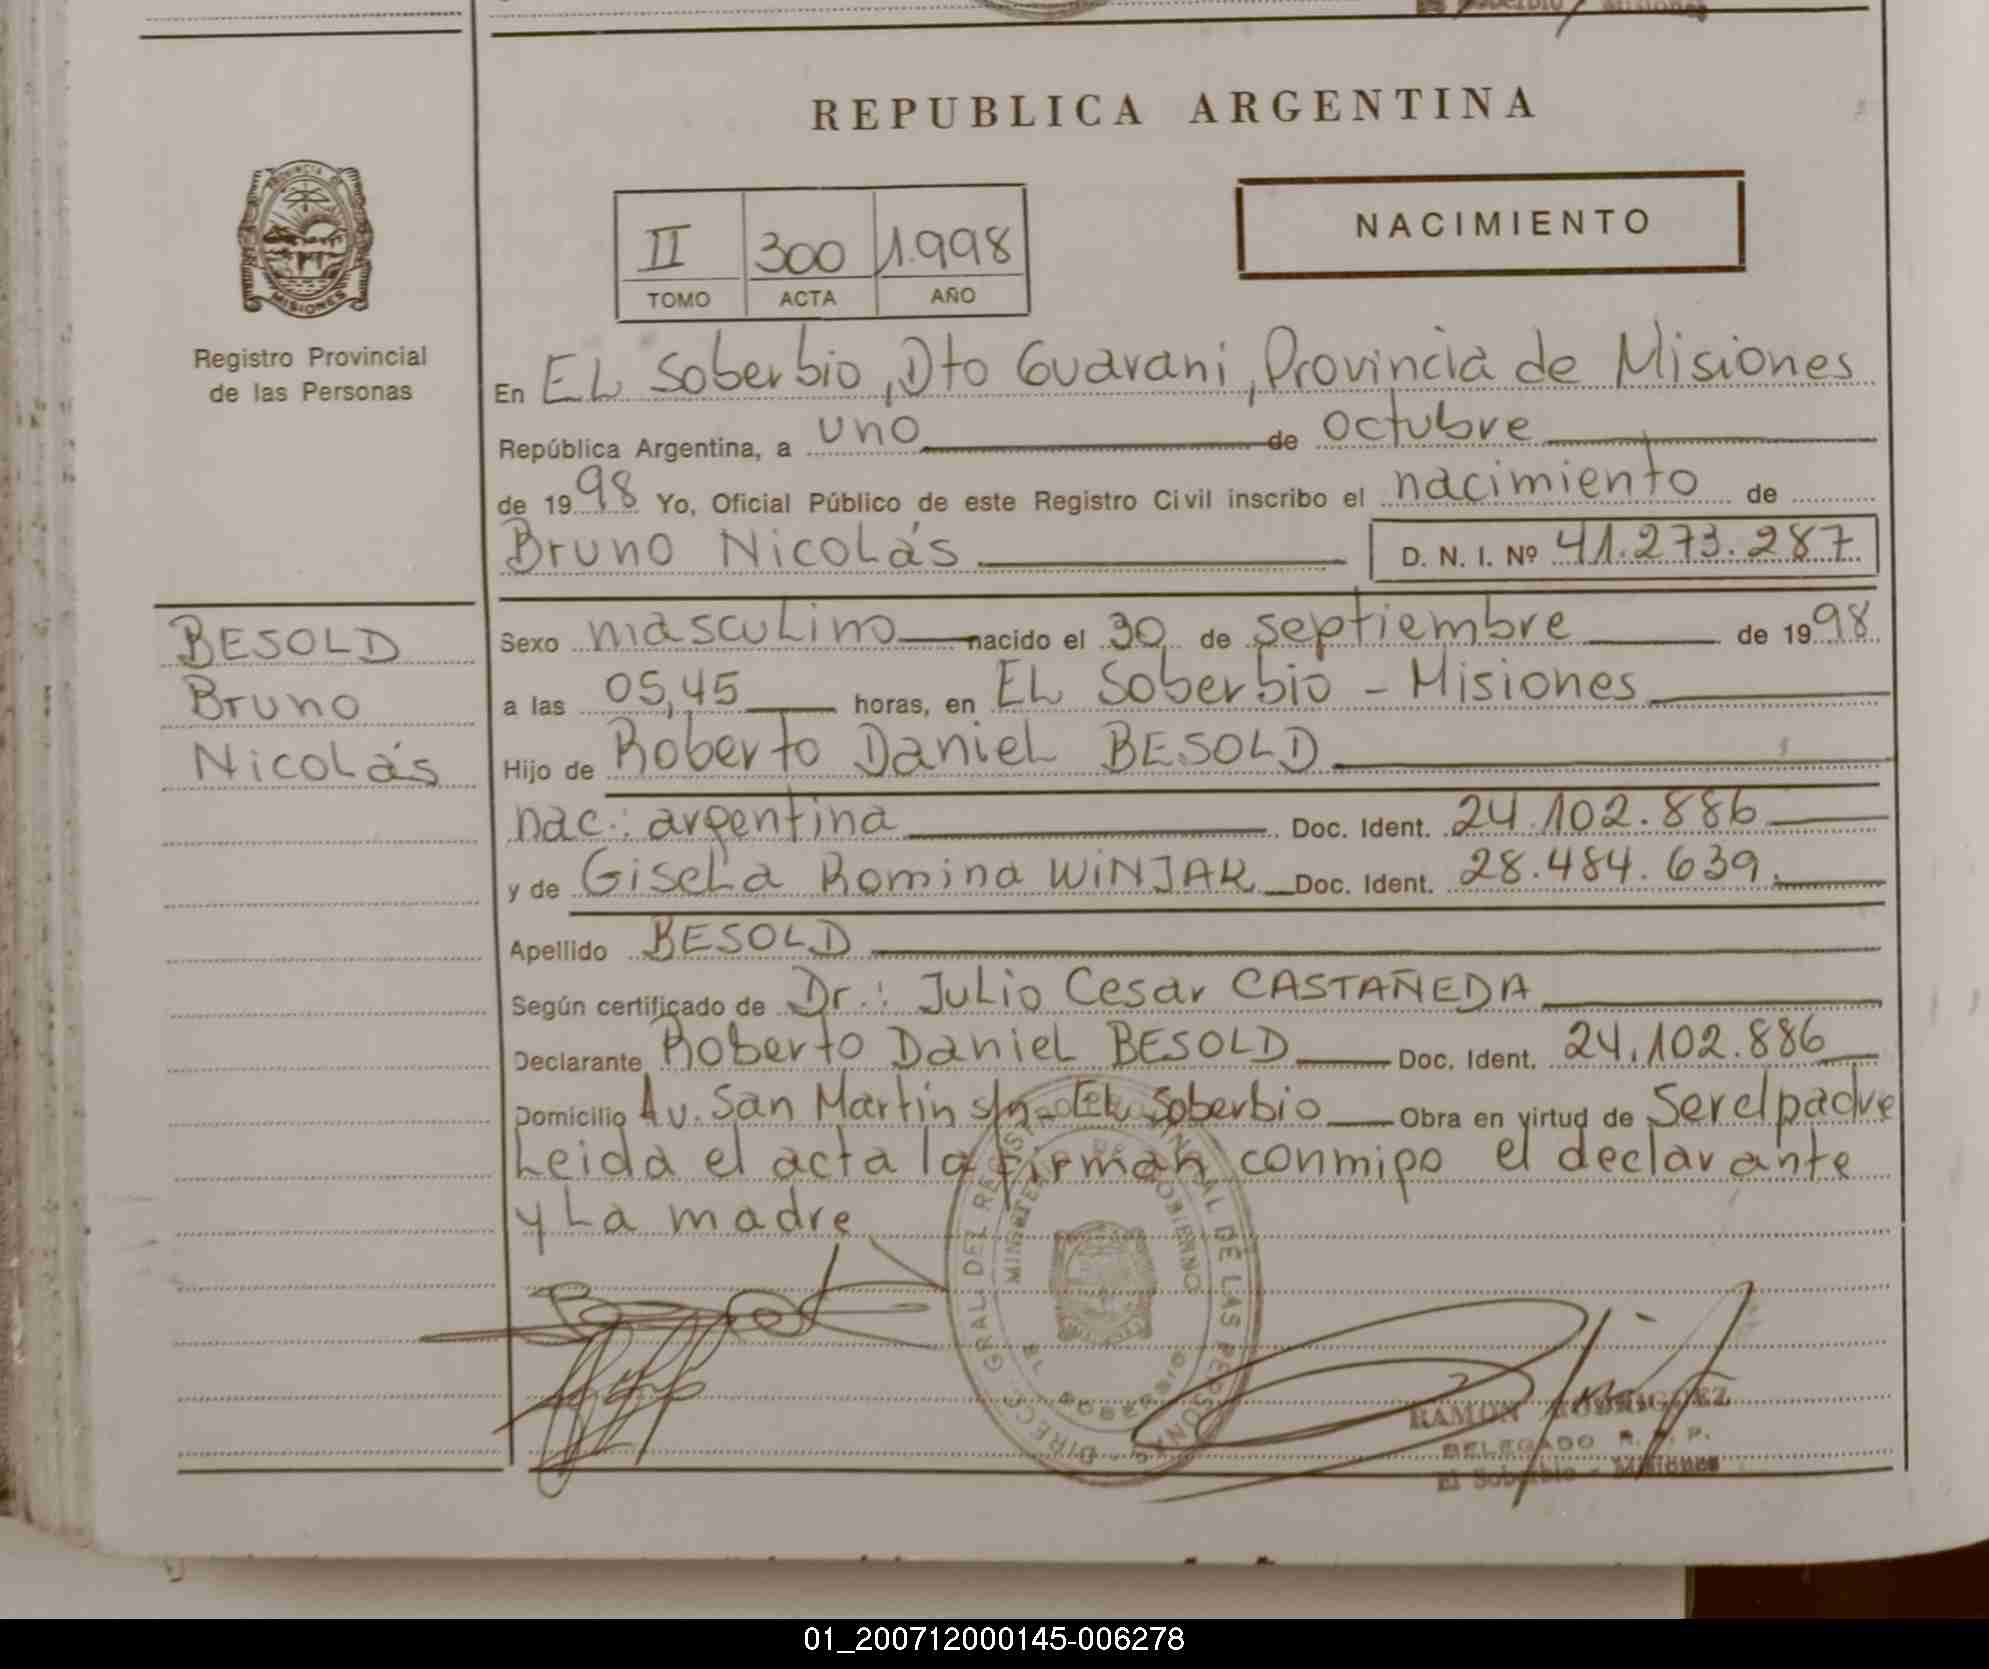 REPUBLICA ARGENTINA
PROVINCIA DE
MISIONES
Registro Provincial
de las Personas
NACIMIENTO
II 300 1.998
TOMO ACTA AÑO
En EL Soberbio, Dto Guarani, Provincia de Misiones
República Argentina, a uno de octubre
de 1998 Yo, Oficial Público de este Registro Civil inscribo el nacimiento de
Bruno Nicolás D. N. I. Nº 41.273.287
BESOLD
Bruno
Nicolás
Sexo masculino nacido el 30 de septiembre de 1998
a las 05,45 horas, en EL Soberbio - Misiones
Hijo de Roberto Daniel BESOLD
nac.: argentina Doc. Ident. 24.102.886
y de Gisela Romina WINJAR Doc. Ident. 28.484.639.
Apellido BESOLD
Según certificado de Dr.: Julio Cesar CASTAÑEDA
Declarante Roberto Daniel BESOLD Doc. Ident. 24.102.886
Domicilio Av. San Martin s/n - EL Soberbio Obra en virtud de Ser el padre
Leida el acta la firman conmigo el declarante
y La madre
DIREC. GRAL DEL REGIST. DE LAS PERSONAS
MINISTERIO DE GOBIERNO
EL SOBERBIO
RAMON RODRIGUEZ
DELEGADO R. P. P.
El Soberbio - Misiones
01_200712000145-006278